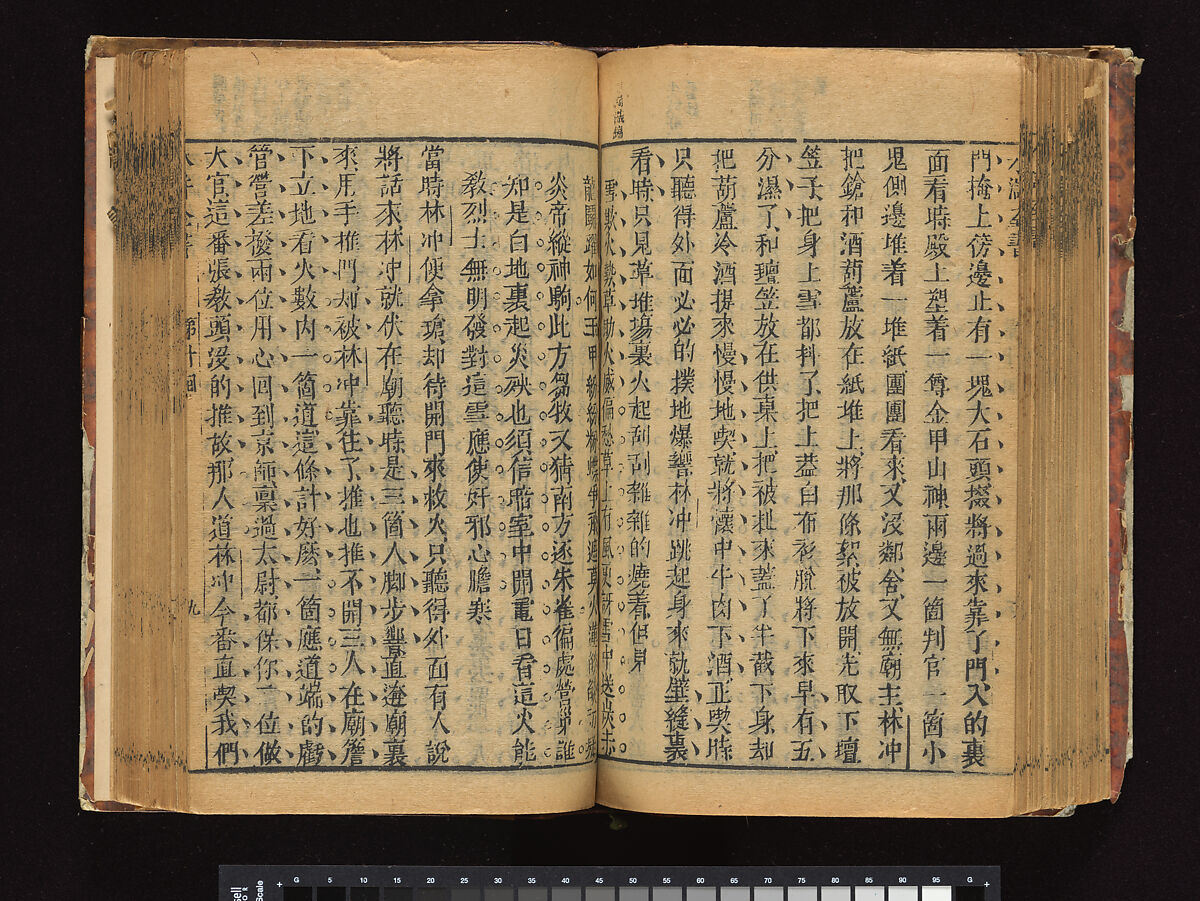 水滸全書
門掩上傍邊止有一塊大石頭撥將過來靠了門入的裏
面看時殿上塑着一尊金甲山神兩邊一箇判官一箇小
鬼側邊堆着一堆紙團團看來又沒鄰舍又無廟主林冲
把鎗和酒葫蘆放在紙堆上將那條絮被放開先取下氊
笠子把身上雪都抖了把上葢白布衫脫將下來早有五
分濕了和氊笠放在供桌上把被扯來蓋了半截下身却
把葫蘆冷酒提來慢慢地喫就將懷中牛肉下酒正喫時
只聽得外面必必的撲地爆響林冲跳起身來就壁縫裏
看時只見草堆場裏火起刮刮雜雜的燒着但見
雪欺火勢草助火威偏愁草上有風更訝雪中送炭赤
龍鬭躍如何玉甲紛紛粉蝶爭飛遍莫火蓮
炎帝縱神駒此方芻牧又猜南方逐朱雀徧處營巢誰
知是白地裏起災殃也須信暗室中開電目看這火能
敎烈士無明發對這雪應使奸邪心膽寒
當時林冲便拿鎗却待開門來救火只聽得外面有人說
將話來林冲就伏在廟聽時是三箇人脚步響直邊廟裏
來用手推門却被林冲靠住了推也推不開三人在廟簷
下立地看火數內一箇道這條計好麽一箇應道端的虧
管營差撥兩位用心回到京師稟過太尉都保你二位做
大官這番張敎頭沒的推故那人道林冲今番直喫我們
第十回
九
G 5 10 15 20 25 30 35 40 45 50 55 60 65 70 75 80 85 90 95 G
Scale